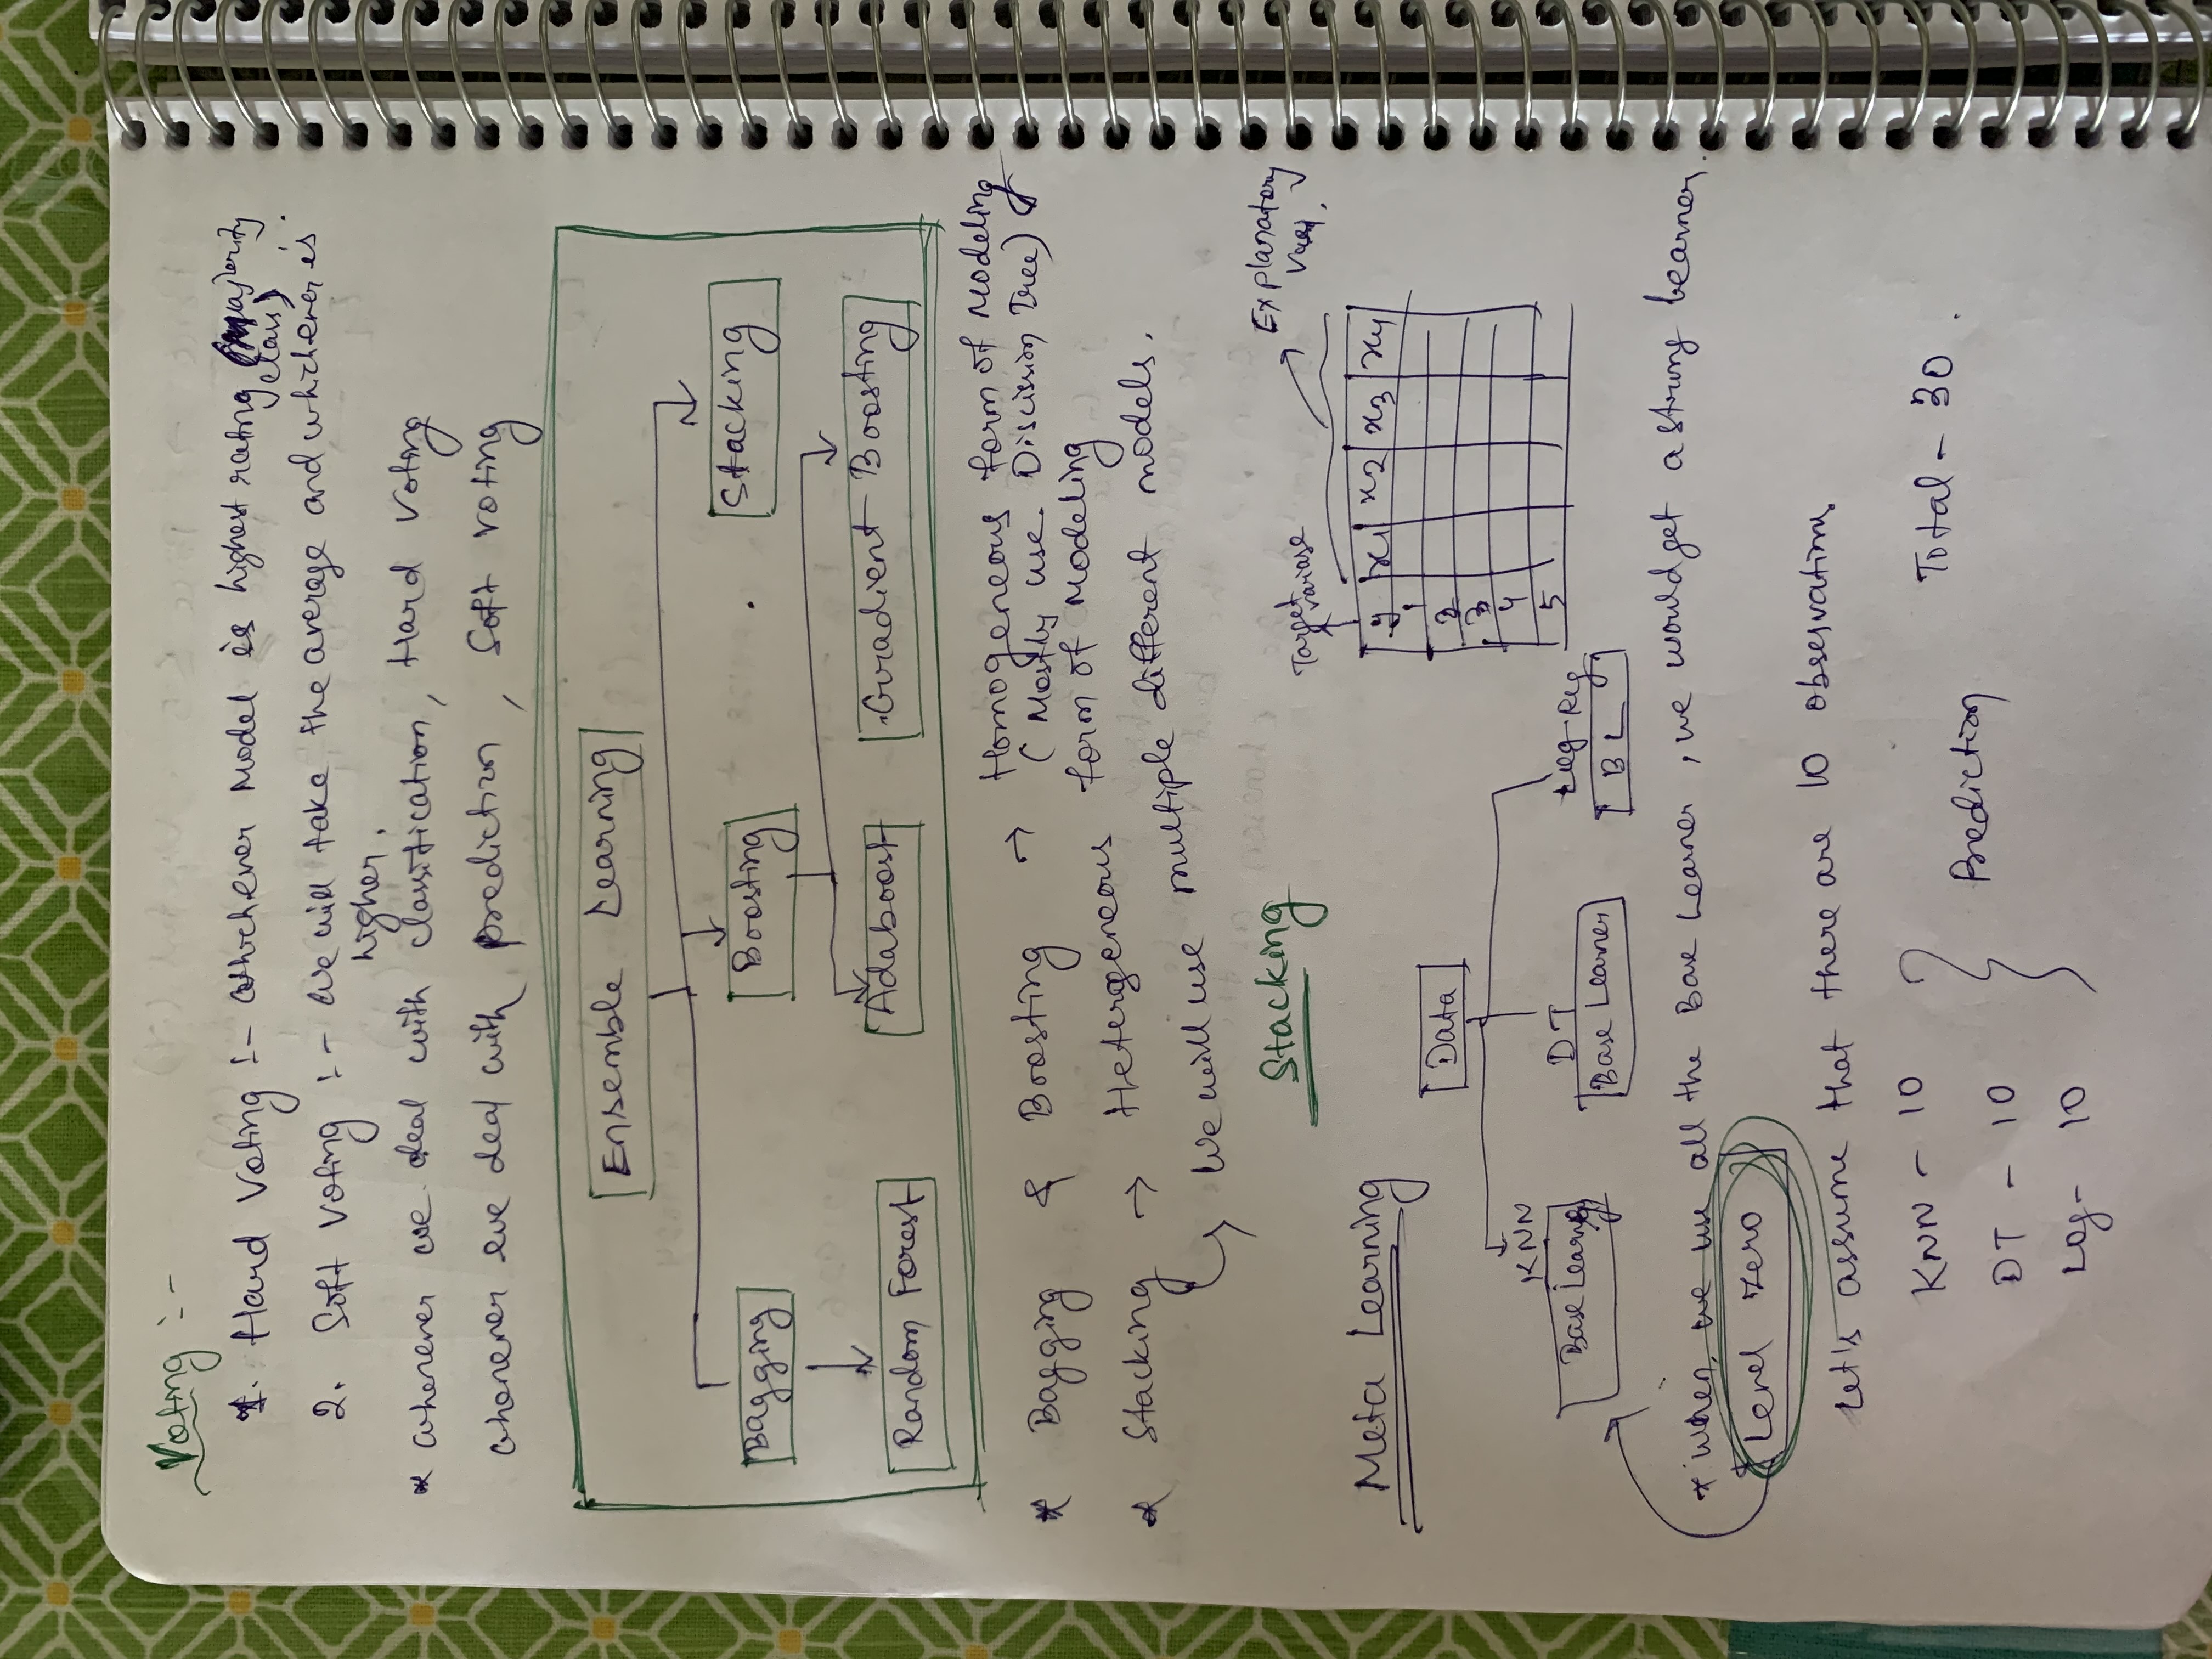 Voting :-
1. Hard Voting :- Whichever Model is highest rating (majority
class)
2. Soft Voting :- We will take the average and whichever is
higher.
* Whenever we deal with classification, Hard Voting
Whenever we deal with prediction, Soft Voting
Ensemble Learning
Bagging Boosting Stacking
Random Forest Adaboost Gradient Boosting
* Bagging & Boosting → Homogeneous form of Modeling
(Mostly use Discission Tree)
* Stacking → Hetergeneous form of Modeling
We will use multiple different models.
Stacking
Target Explanatory
Meta Learning
y x1 x2 x3 x4
1
2
3
4
5
Data
KNN DT Log Reg
Base Learner Base Learner BL
* When we use all the Base Learner, we would get a strong learner.
Level zero
Let's assume that there are 10 observations.
KNN - 10
DT - 10
Log - 10
Prediction Total - 30.